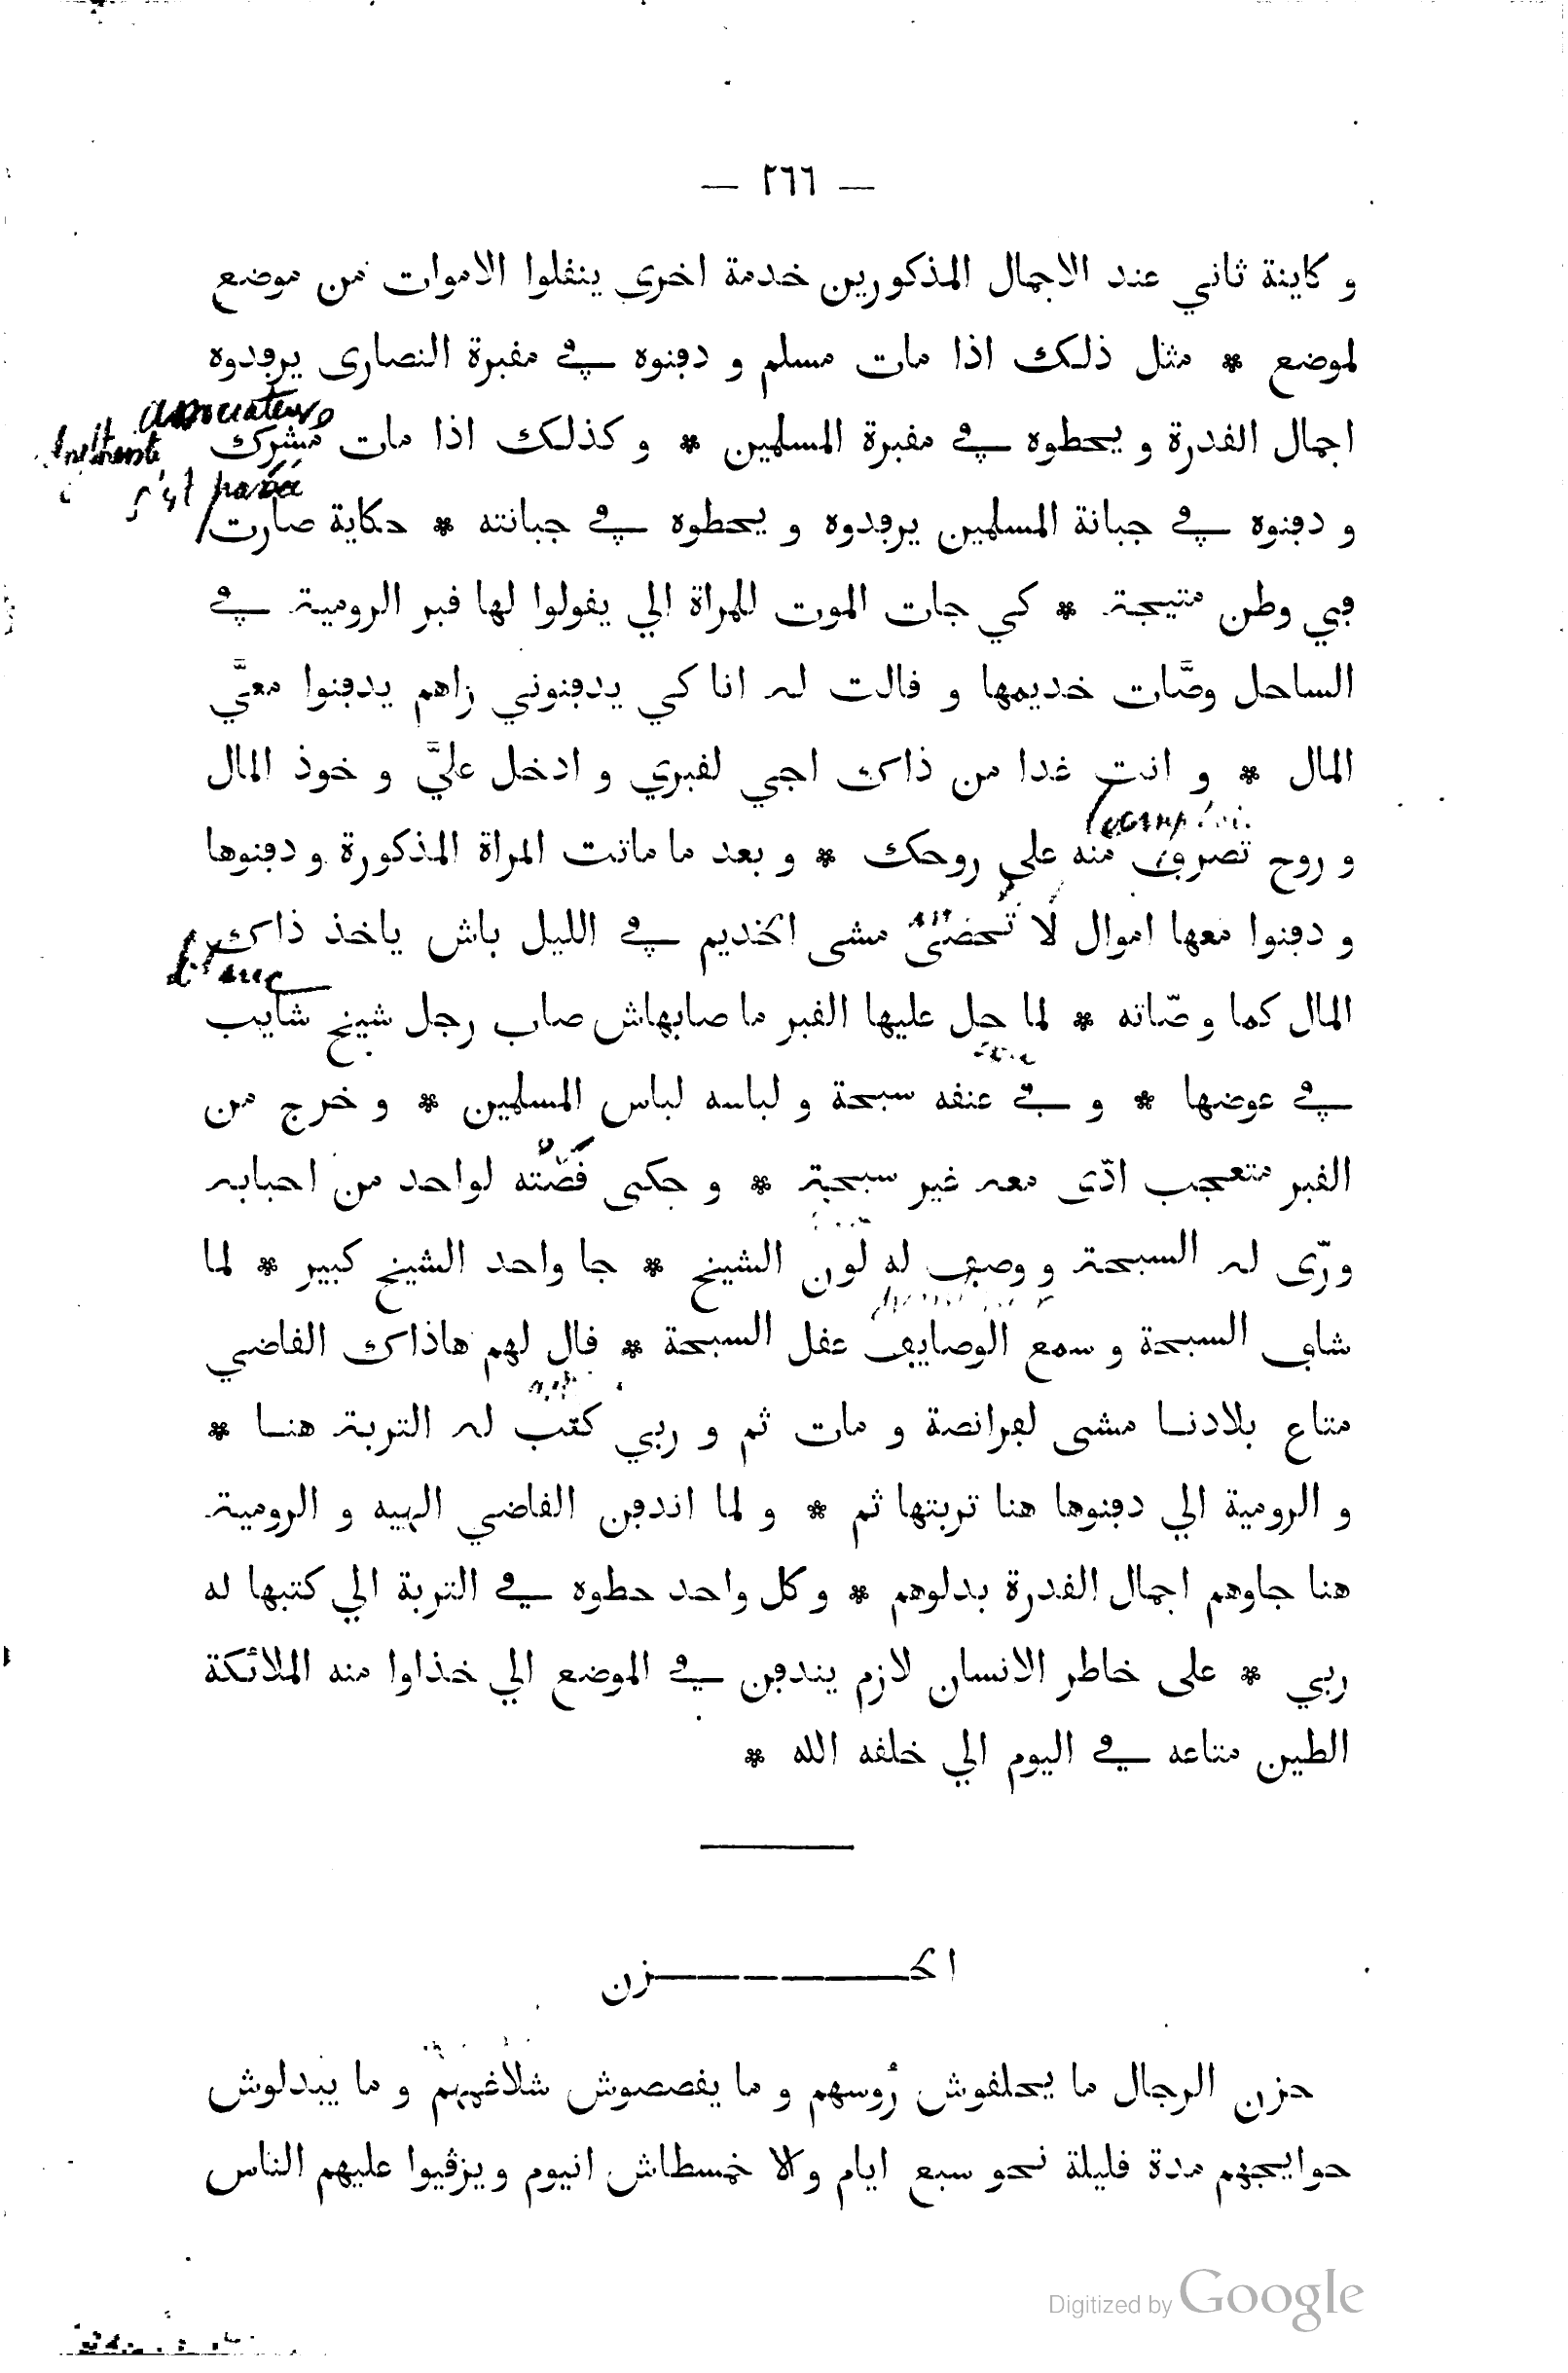 — ٢٦٦ —
و كاينة ثاني عند الاجمال المذكورين خدمة اخرى ينقلوا الاموات من موضع
لموضع * مثل ذلك اذا مات مسلم و دفنوه في مقبرة النصارى يرفدوه
associateur
اجمال القدرة و يحطوه في مقبرة المسلمين * و كذلك اذا مات مُشرك
s'est passée
و دفنوه في جبانة المسلمين يرفدوه و يحطوه في جبانته * حكاية صارت
في وطن متيجة * كي جات الموت للمراة الي يقولوا لها قبر الرومية في
الساحل وصَّات خديمها و قالت له انا كي يدفنوني راهم يدفنوا معيَّ
المال * و انت غدا من ذاك اجي لقبري و ادخل عليَّ و خوذ المال
و روح تصرف منه على روحك * و بعد ما ماتت المراة المذكورة و دفنوها
و دفنوا معها اموال لا تحصى مشى الخديم في الليل باش ياخذ ذاك
المال كما وصّاته * لما حل عليها القبر ما صابهاش صاب رجل شيخ شايب
في عوضها * و في عنقه سبحة و لباسه لباس المسلمين * و خرج من
القبر متعجب ادّى معه غير سبحة * و حكى قصّته لواحد من احبابه
ورّى له السبحة و وصف له لون الشيخ * جا واحد الشيخ كبير * لما
شاف السبحة و سمع الوصايف عقل السبحة * قال لهم هاذاك القاضي
متاع بلادنا مشى لفرانصة و مات ثم و ربي كتب له التربة هنا *
و الرومية الي دفنوها هنا تربتها ثم * و لما اندفن القاضي الهيه و الرومية
هنا جاوهم اجمال القدرة بدلوهم * و كل واحد حطوه في التربة الي كتبها له
ربي * على خاطر الانسان لازم يندفن في الموضع الي خذاوا منه الملائكة
الطين متاعه في اليوم الي خلقه الله *
الحزن
حزن الرجال ما يحلقوش رُوسهم و ما يقصصوش شلاغمهم و ما يبدلوش
حوايجهم مدة قليلة نحو سبع ايام والا خمسطاش انيوم و يزڤيوا عليهم الناس
Digitized by Google